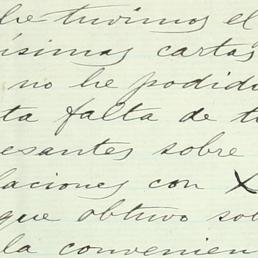 he tuvimos el
ísimas cartas
no he podido
ta falta de t
esantes sobre
laciones con X
que obtuvo sob
la convenien